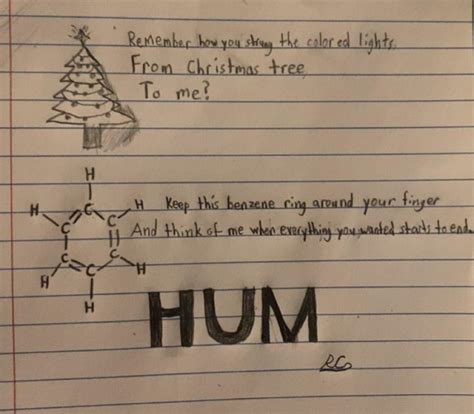 Remember how you strung the colored lights,
From Christmas tree,
To me?
H
H H
C
C C
C C
C
H H
H
Keep this benzene ring around your finger
And think of me when everything you wanted starts to end.
HUM